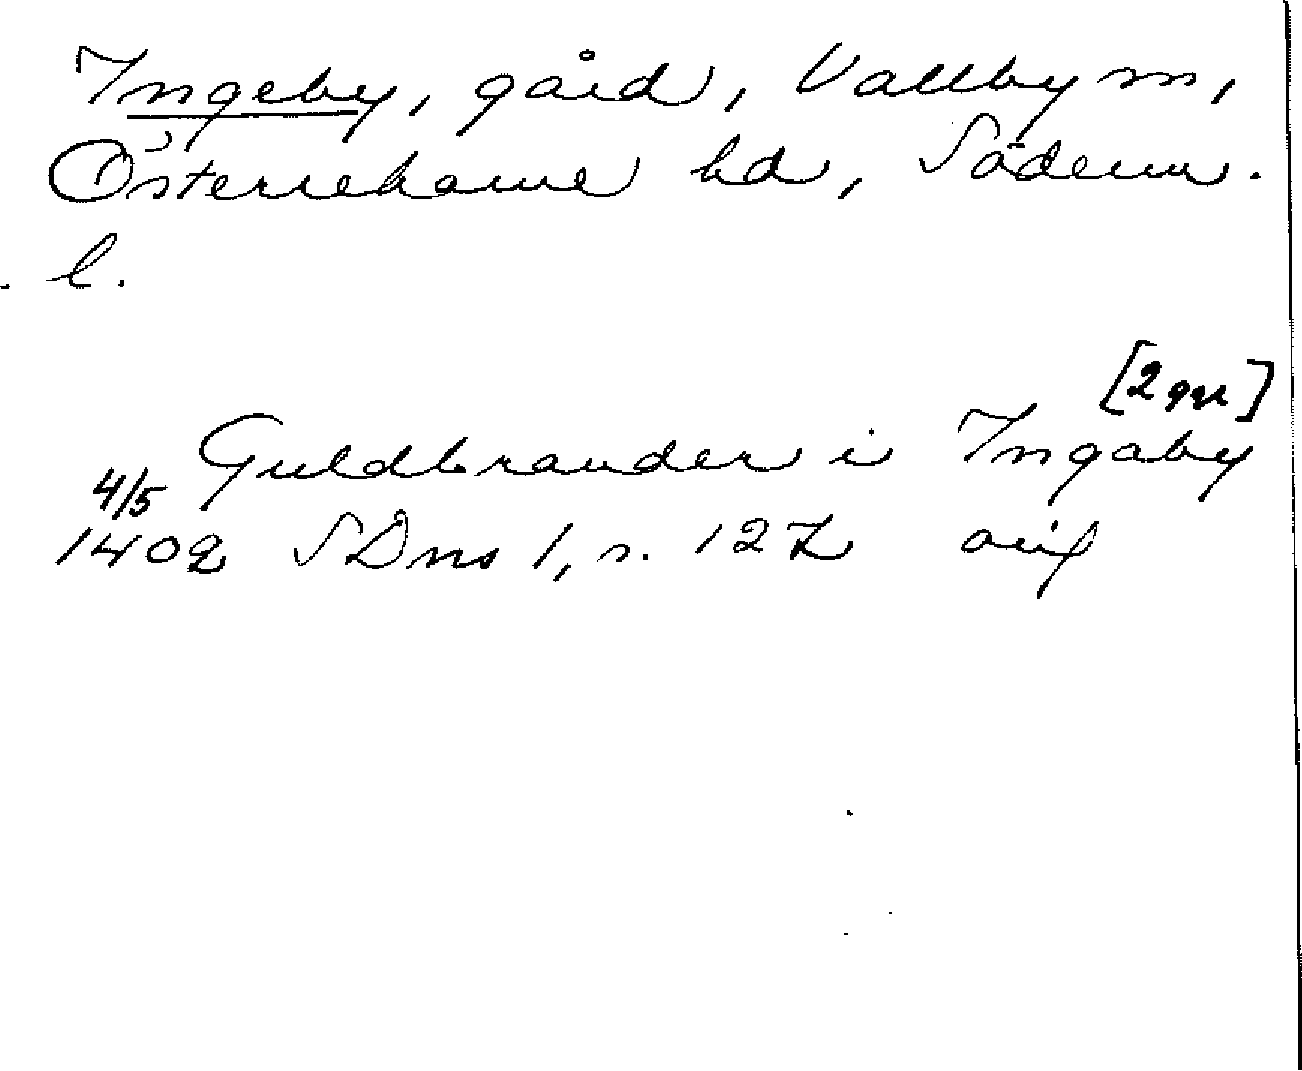 Ingeby, gård, Vallby sn,
Österrekarne hd, Söderm.
l.
[2 gr]
Guldbrander i Ingaby
4/5
1402 SDns 1, s. 127 orig